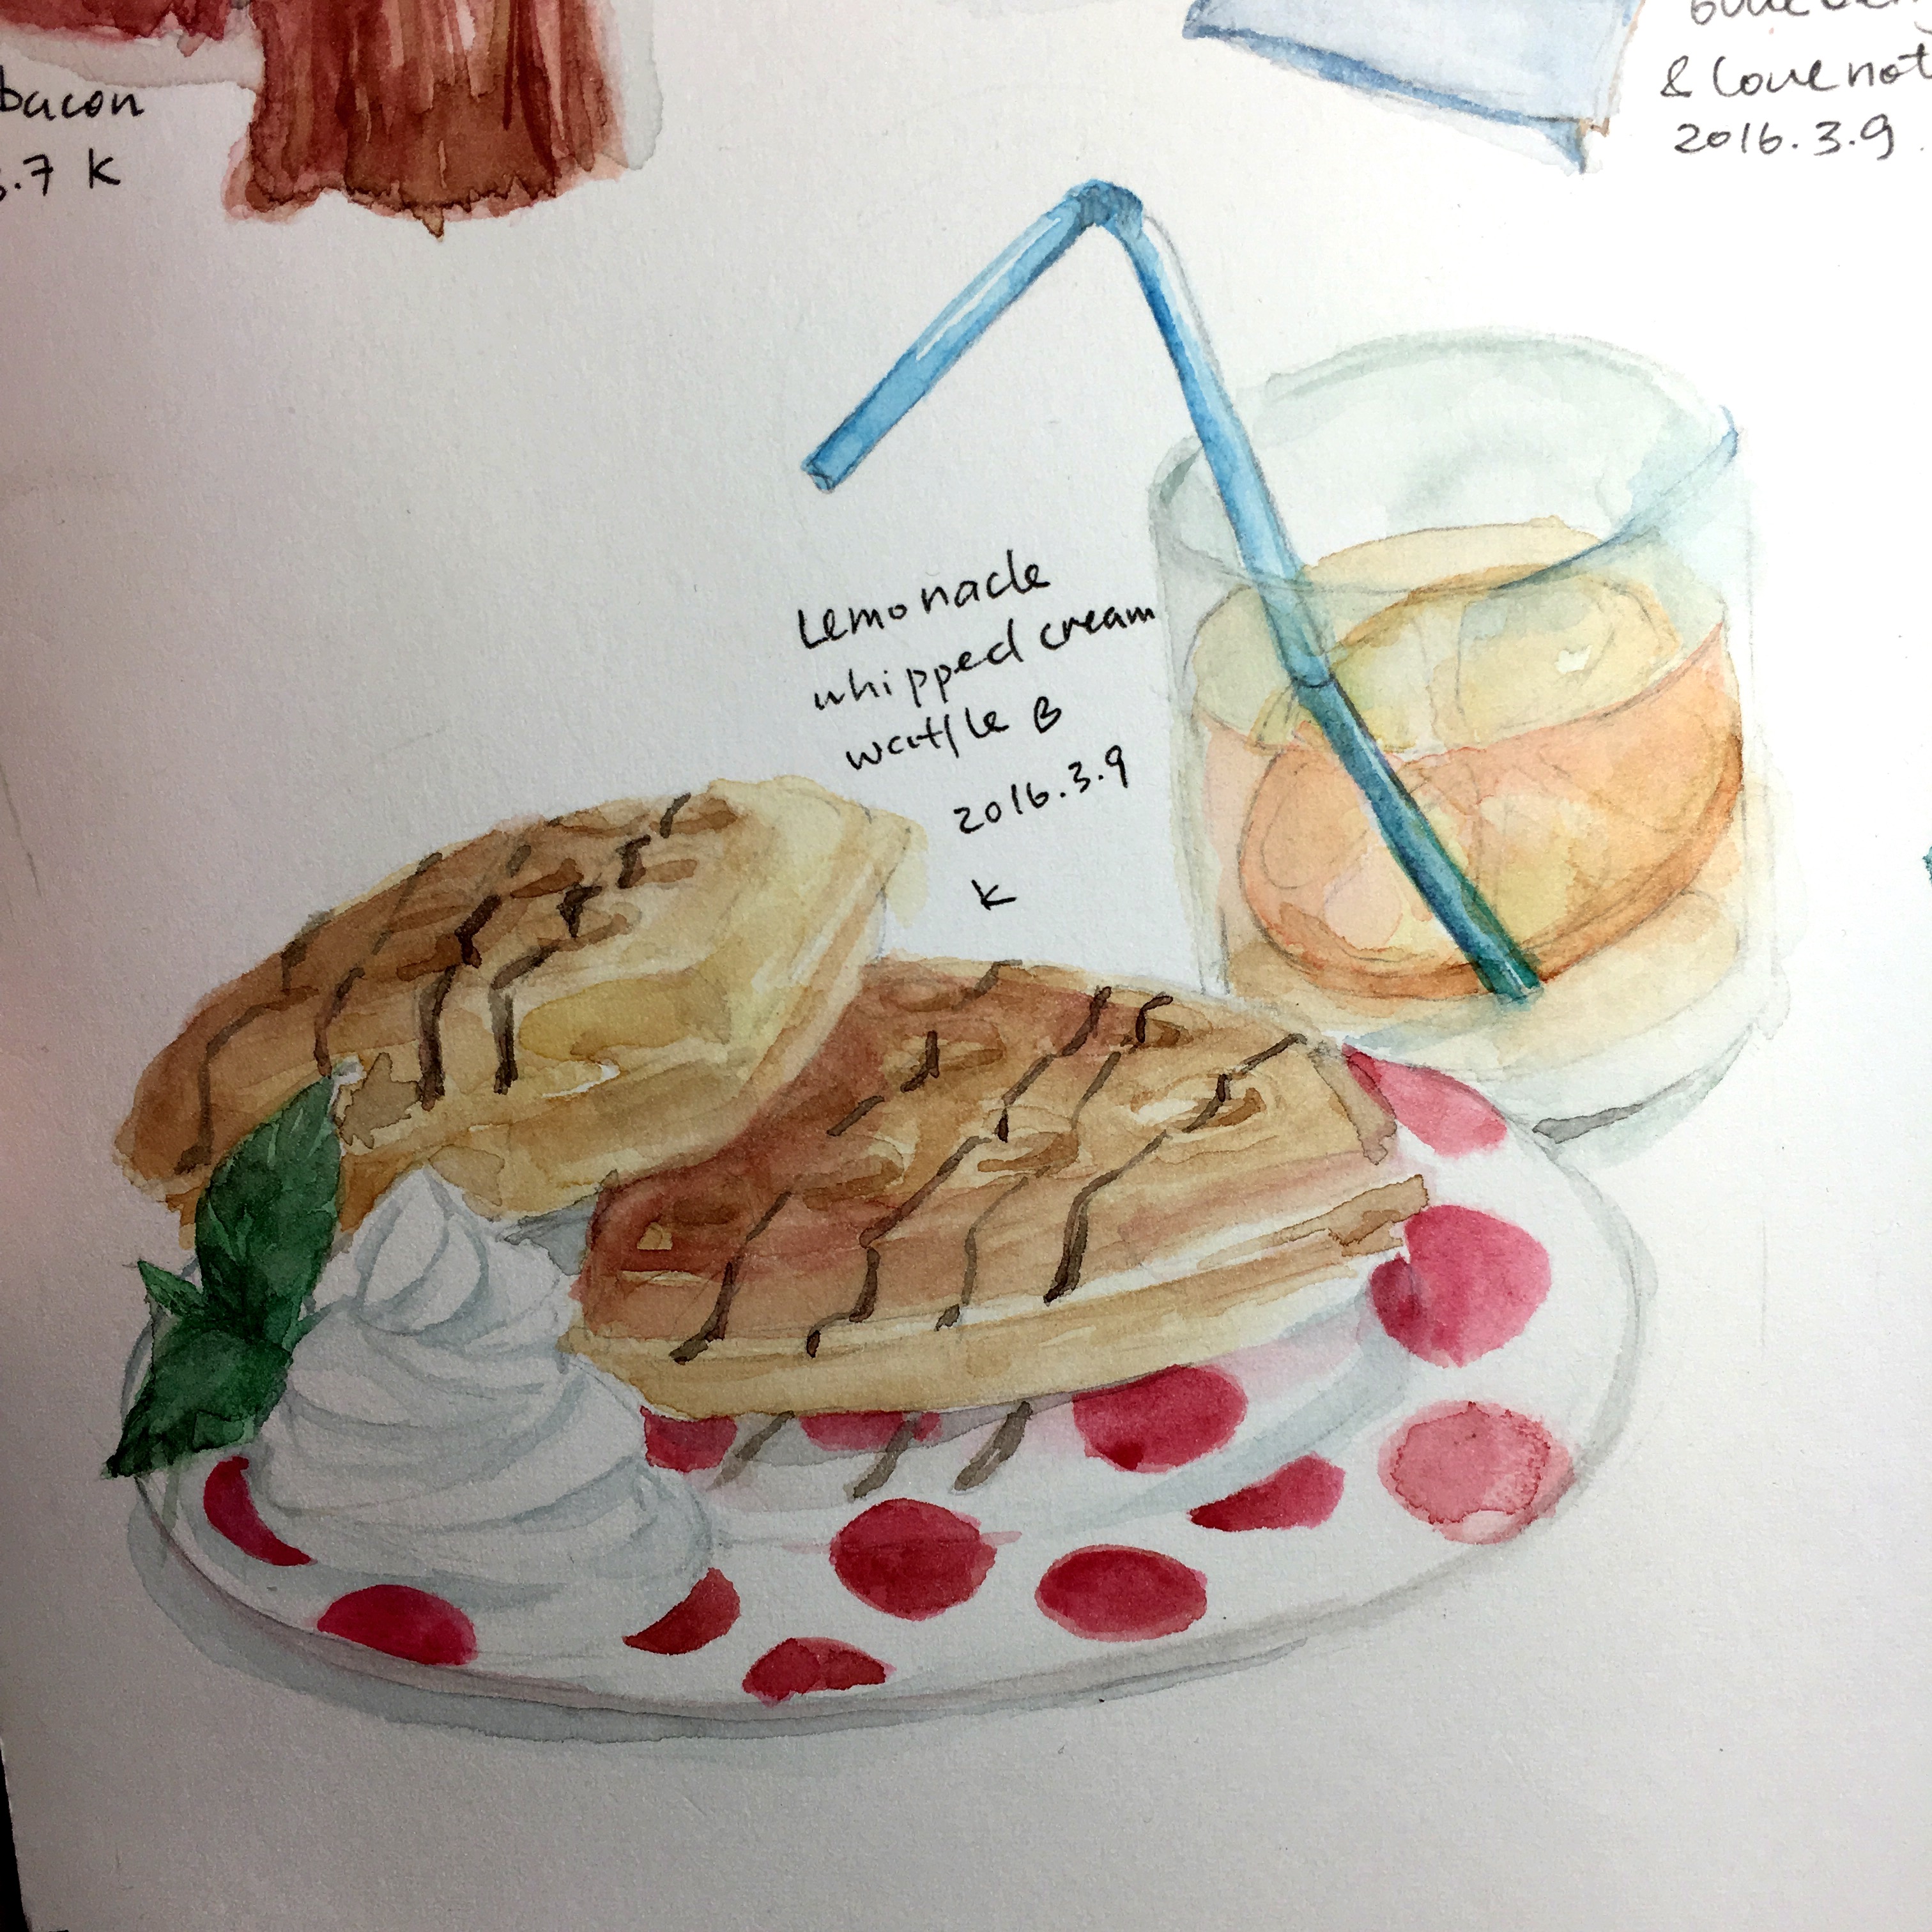 bacon
3.7 K
& love not
2016.3.9
Lemonade
whipped cream
waffle B
2016.3.9
K